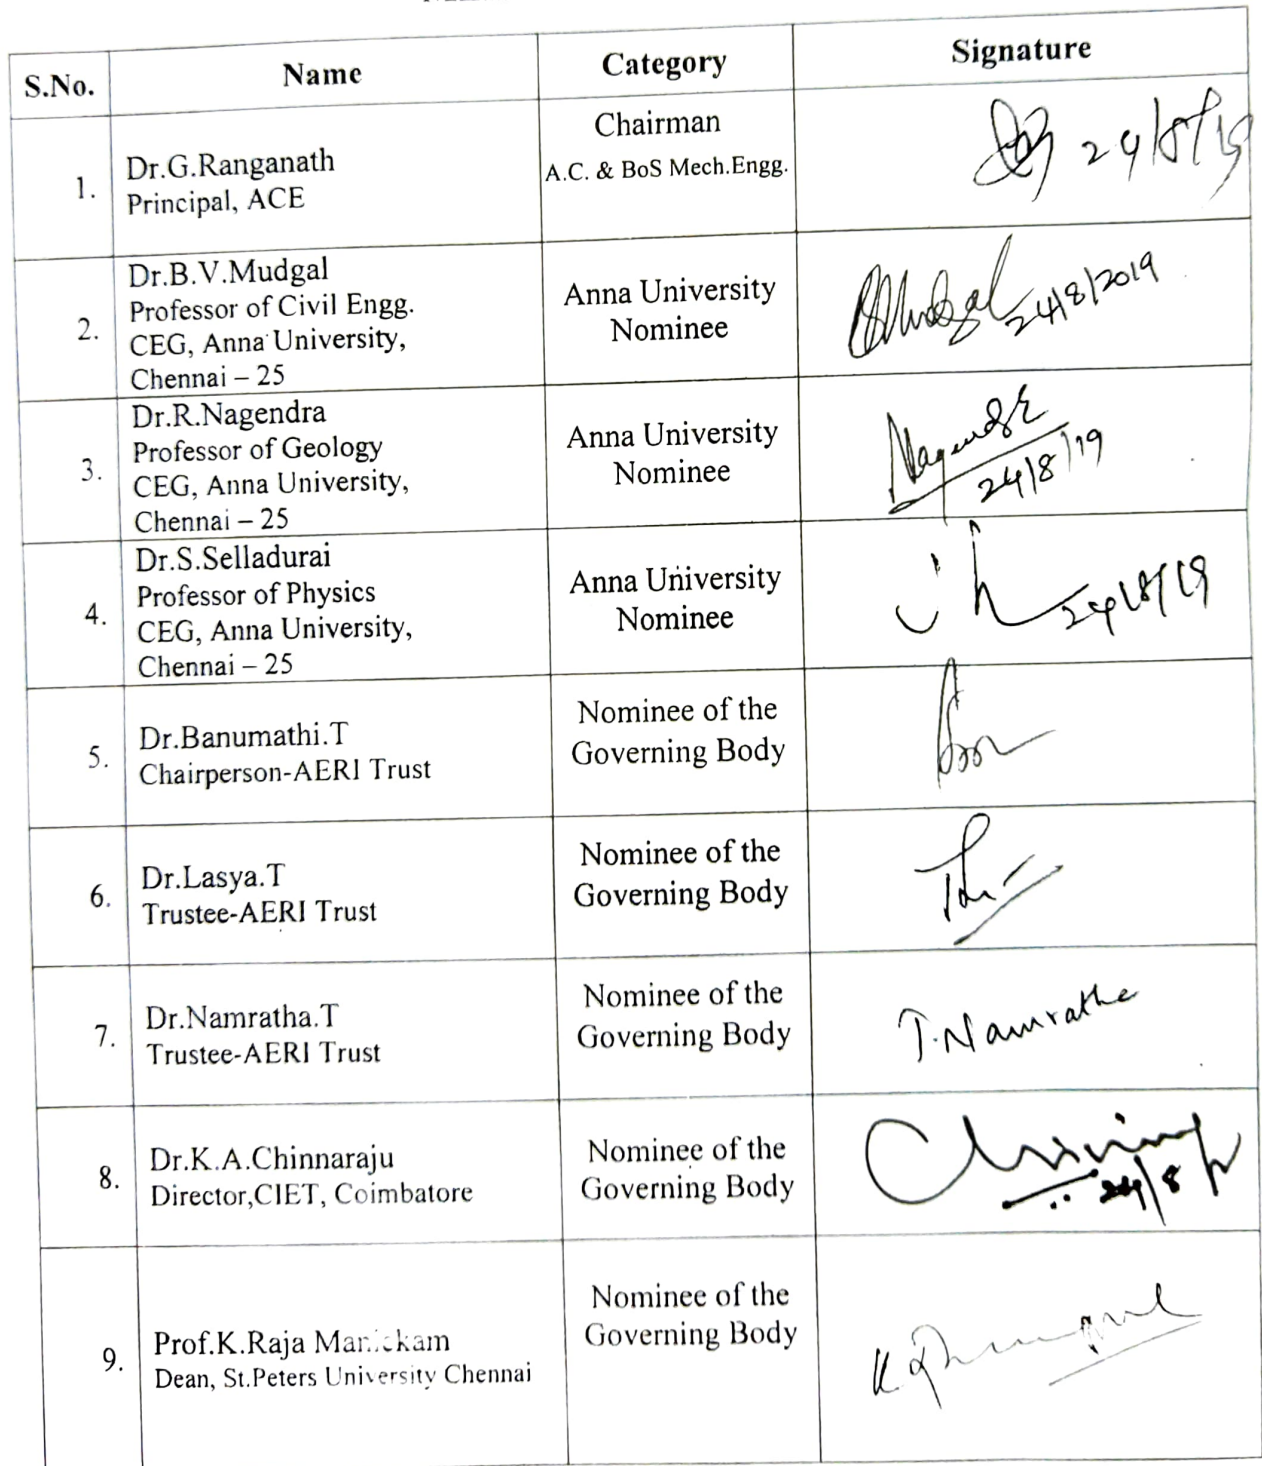 S.No. Name Category Signature
1. Dr.G.Ranganath
Principal, ACE
Chairman
A.C. & BoS Mech.Engg.
24/8/19
2. Dr.B.V.Mudgal
Professor of Civil Engg.
CEG, Anna University,
Chennai – 25
Anna University
Nominee
24/8/2019
3. Dr.R.Nagendra
Professor of Geology
CEG, Anna University,
Chennai – 25
Anna University
Nominee
24/8/19
4. Dr.S.Selladurai
Professor of Physics
CEG, Anna University,
Chennai – 25
Anna University
Nominee
24/8/19
5. Dr.Banumathi.T
Chairperson-AERI Trust
Nominee of the
Governing Body
6. Dr.Lasya.T
Trustee-AERI Trust
Nominee of the
Governing Body
7. Dr.Namratha.T
Trustee-AERI Trust
Nominee of the
Governing Body
T.Namratha
8. Dr.K.A.Chinnaraju
Director,CIET, Coimbatore
Nominee of the
Governing Body
24/8
9. Prof.K.Raja Manickam
Dean, St.Peters University Chennai
Nominee of the
Governing Body